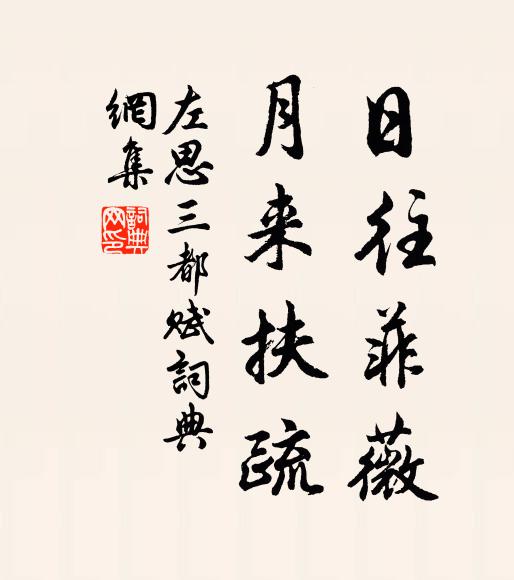 日往菲薇
月来扶疏
左思三都赋詞典
網集
詞典
网印